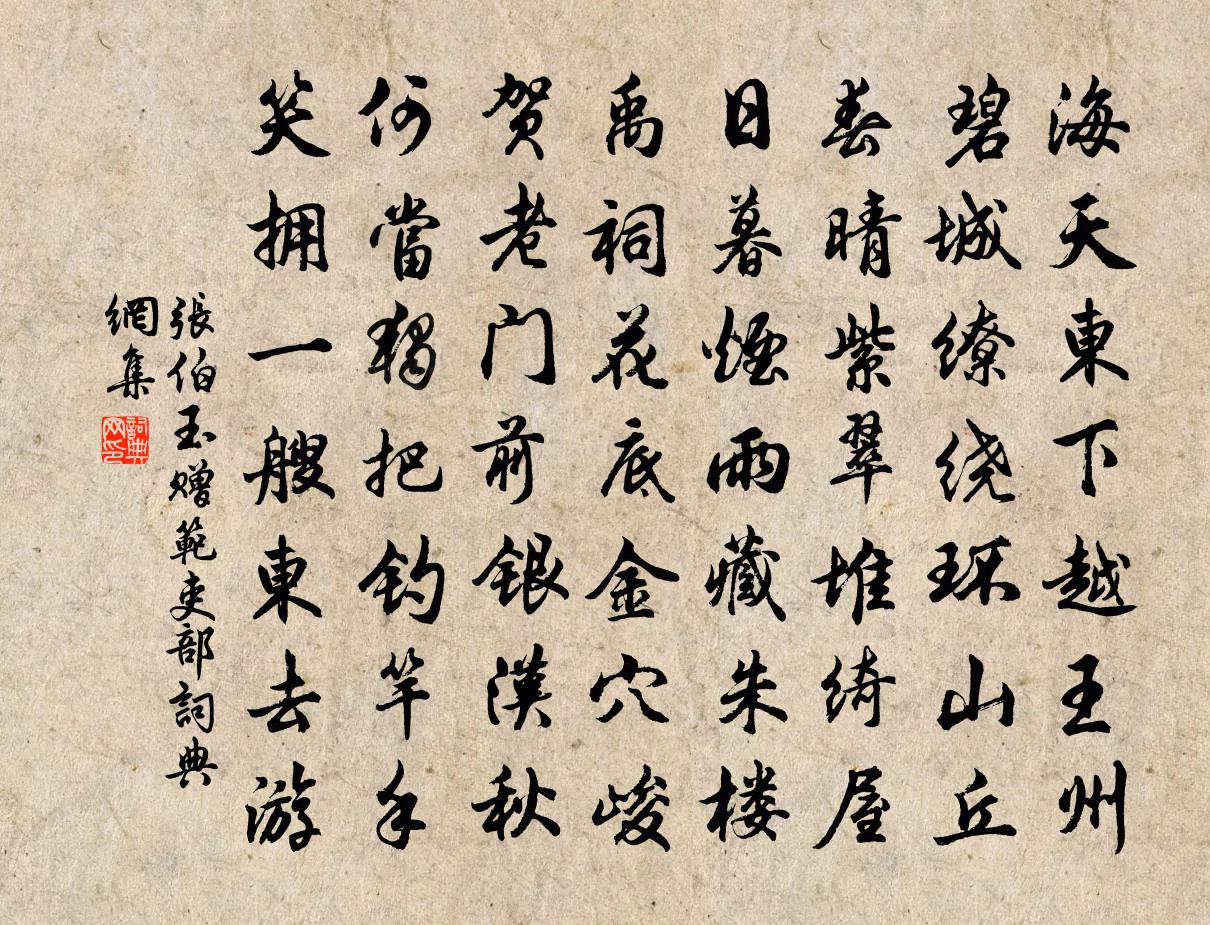 海天東下越王州
碧城繚绕环山丘
春晴紫翠堆綺屋
日暮煙雨藏朱楼
禹祠花底金穴峻
贺老门前银漢秋
何當獨把钓竿手
笑拥一艘東去游
張伯玉赠範吏部詞典
網集
詞典
网印